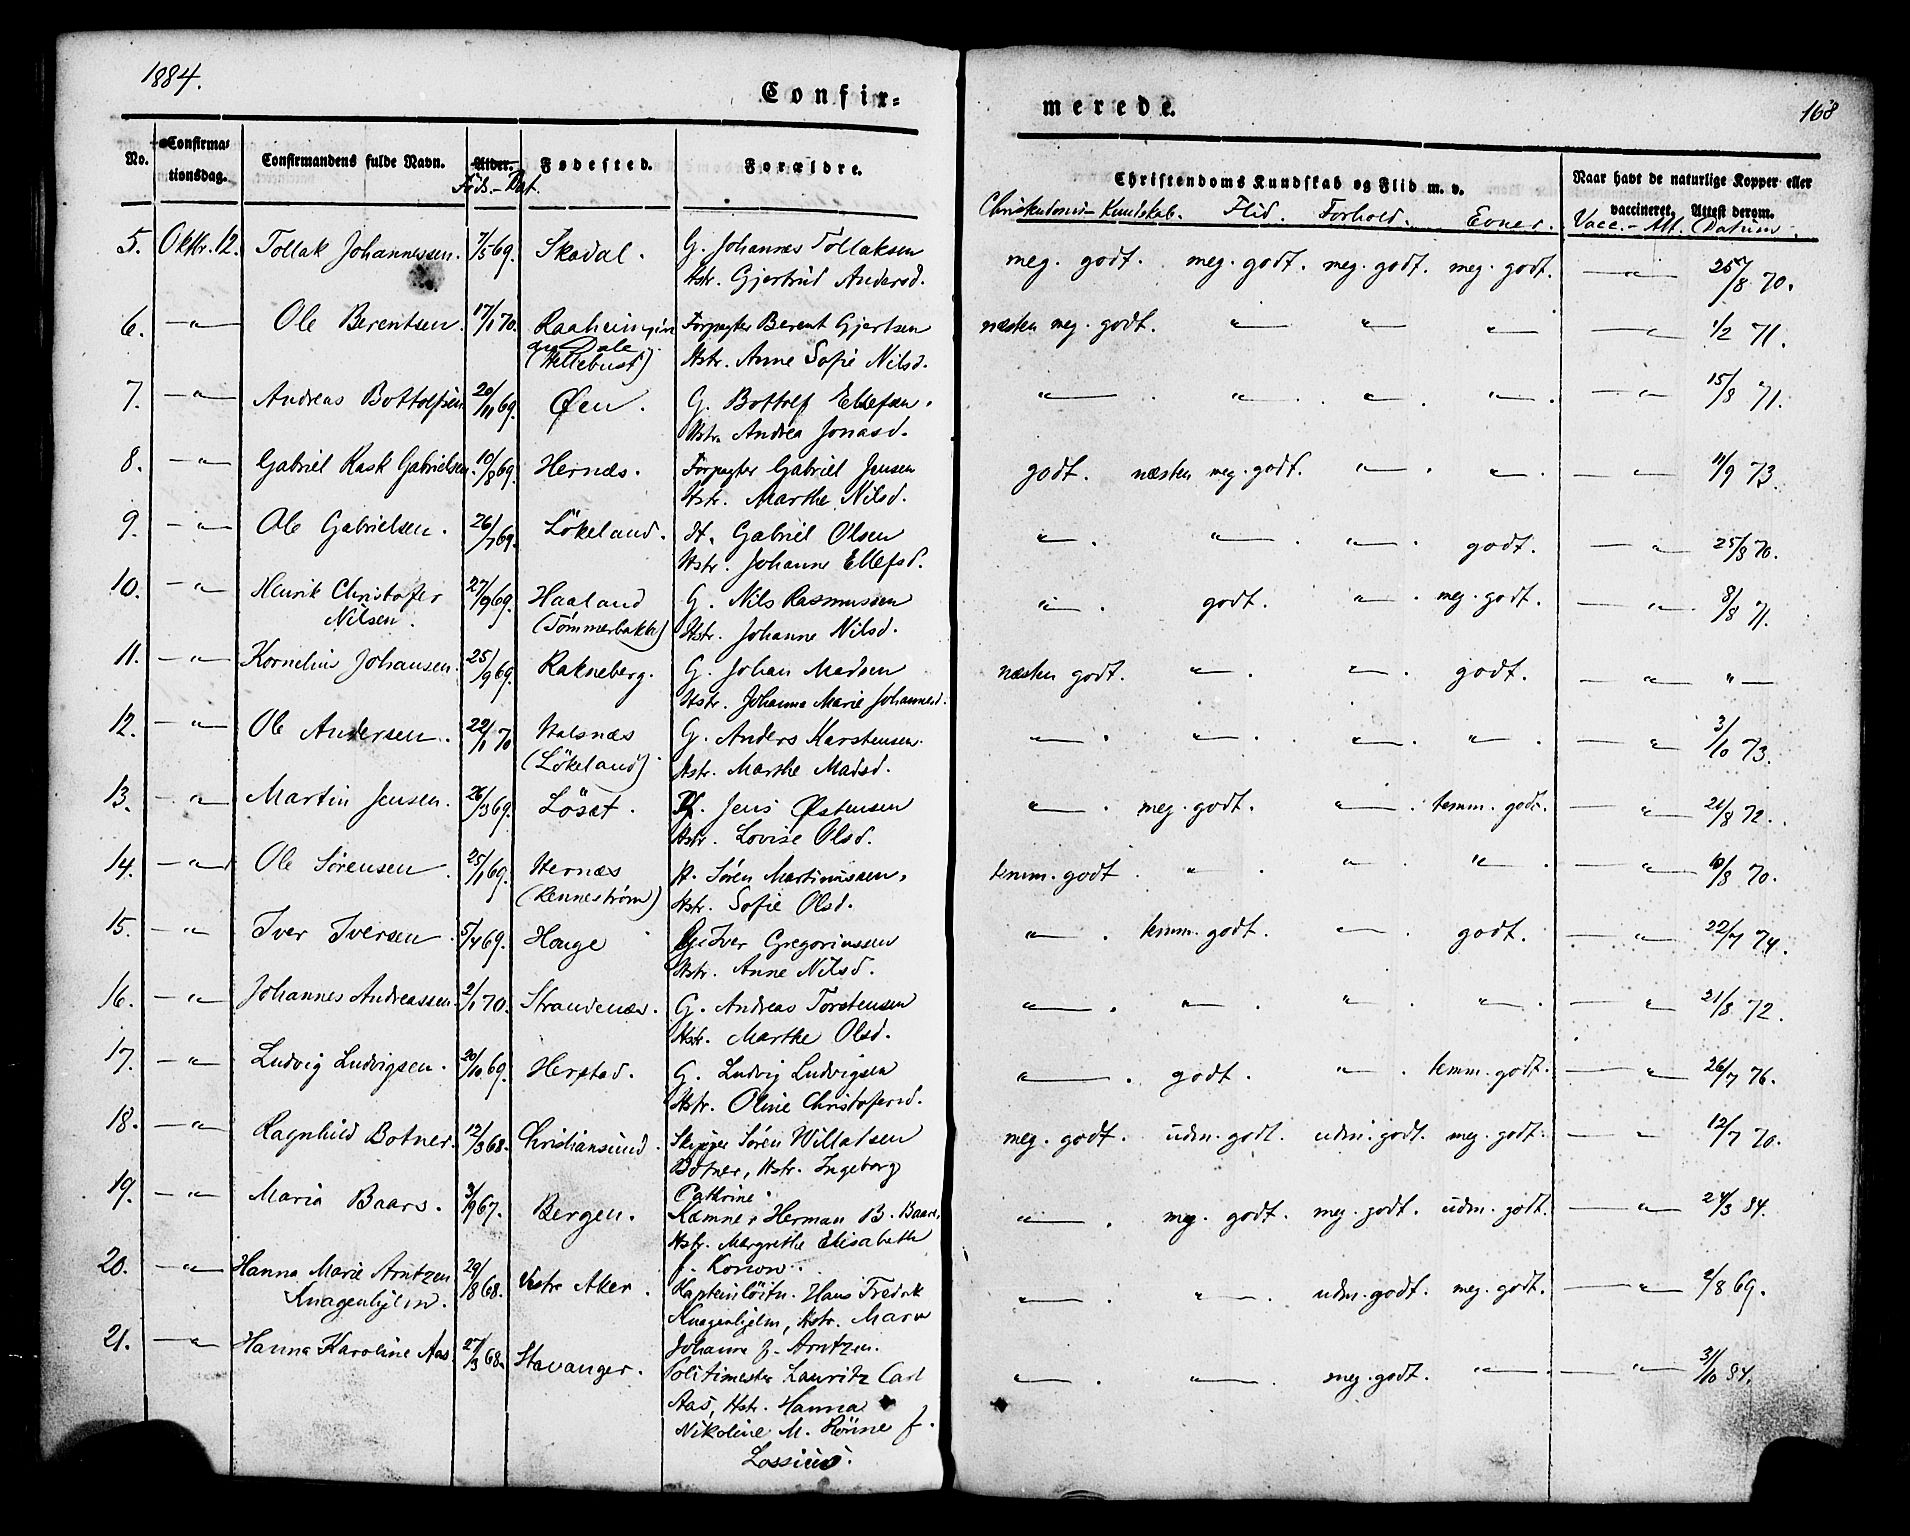 1884.
Confir=
merede.
168
No.
Confirma=
tionsdag.
Confirmandens fulde Navn.
Alder.
Føds.-Dat.
Fødested.
Forældre.
Christendoms Kundskab og Flid m. v.
Naar havt de naturlige Kopper eller
vaccineret, Attest derom.
Christendoms-Kundskab. Flid. Forhold. Evner. Vacc.-Att. Datum.
5. Oktbr. 12. Tollak Johannessen. 7/5 69. Skadal. G. Johannes Tollaksen
Hstr. Gjertrud Andersd.
meg. godt. meg. godt. meg. godt. meg. godt. — " — 25/8 70.
6. — " — Ole Berentsen. 17/1 70. Raaheim
Dale
(Hellebust)
Forpagter Berent Gjertsen
Hstr. Anne Sofie Nilsd.
næsten meg. godt. " " " — " — 1/2 71.
7. — " — Andreas Bottolfsen 20/11 69. Øen. G. Bottolf Ellefsen.
Hstr. Andrea Jonasd.
" " " " — " — 15/8 71.
8. — " — Gabriel Rask Gabrielsen. 10/8 69. Hernæs. Forpagter Gabriel Jensen
Hstr. Marthe Nilsd.
godt. næsten meg. godt. " " — " — 11/9 73.
9. — " — Ole Gabrielsen. 26/7 69. Lökeland. H. Gabriel Olsen
Hstr. Johanne Ellefsd.
" " " godt. — " — 25/8 70.
10. — " — Henrik Christofer
Nilsen.
27/9 69. Haaland
(Tömmerbakke)
G. Nils Rasmussen
Hstr. Johanne Nilsd.
" godt. " meg. godt. — " — 8/8 71.
11. — " — Kornelius Johansen. 25/9 69. Rakneberg. G. Johan Madsen
Hstr. Johanna Marie Johannesd.
næsten godt. " " godt. — " — " —
12. — " — Ole Andersen. 22/1 70 Halsnæs
(Lökeland)
G. Anders Karstensen.
Hstr. Marthe Madsd.
" " " " — " — 3/10 73.
13. — " — Martin Jensen. 26/3 69. Löset. Pf. Jens Østensen
Hstr. Lovise Olsd.
" meg. godt. " temm. godt. — " — 21/8 72.
14. — " — Ole Sörensen. 25/1 69. Hernæs
(Rennestrøm)
H. Sören Martinussen.
Hstr. Sofie Olsd.
temm. godt " " " — " — 10/8 70.
15. — " — Iver Iversen. 5/4 69. Hauge G. Iver Gregoriussen
Hstr. Anne Nilsd.
" temm. godt. " godt. — " — 22/7 74.
16. — " — Johannes Andreassen. 2/1 70. Strandenæs. G. Andreas Torstensen
Hstr. Marthe Olsd.
" " " " — " — 21/8 72.
17. — " — Ludvig Ludvigsen. 20/10 69. Herstad. G. Ludvig Ludvigsen
Hstr. Oline Christofersd.
" godt. " temm. godt. — " — 26/7 76.
18. — " — Ragnhild Botner. 12/3 68. Christiansund. Skipper Sören Willadsen
Botner, Hstr. Ingeborg
Cathrine.
meg. godt. udm. godt. udm. godt. meg. godt. — " — 12/7 70.
19. — " — Maria Baars. 3/9 67. Bergen. Kæmner Herman B. Baars,
Hstr. Margrethe Elisabeth
f. Konow.
" meg. godt. meg. godt. udm. godt. — " — 24/3 84.
20. — " — Hanna Marie Arntzen
Knagenhjelm.
29/8 68. Vestre Aker. Kapteinlöitn. Hans Fredrik
Knagenhjelm, Hstr. Maren
Johanne f. Arntzen.
" " udm. godt. meg. godt. — " — 2/8 69.
21. — " — Hanna Karoline Aas. 27/3 68. Stavanger. Politimester Lauritz Carl
Aas, Hstr. Hanna
Nikoline M. Rönne f.
Lossius.
" " meg. godt. " — " — 31/10 84.